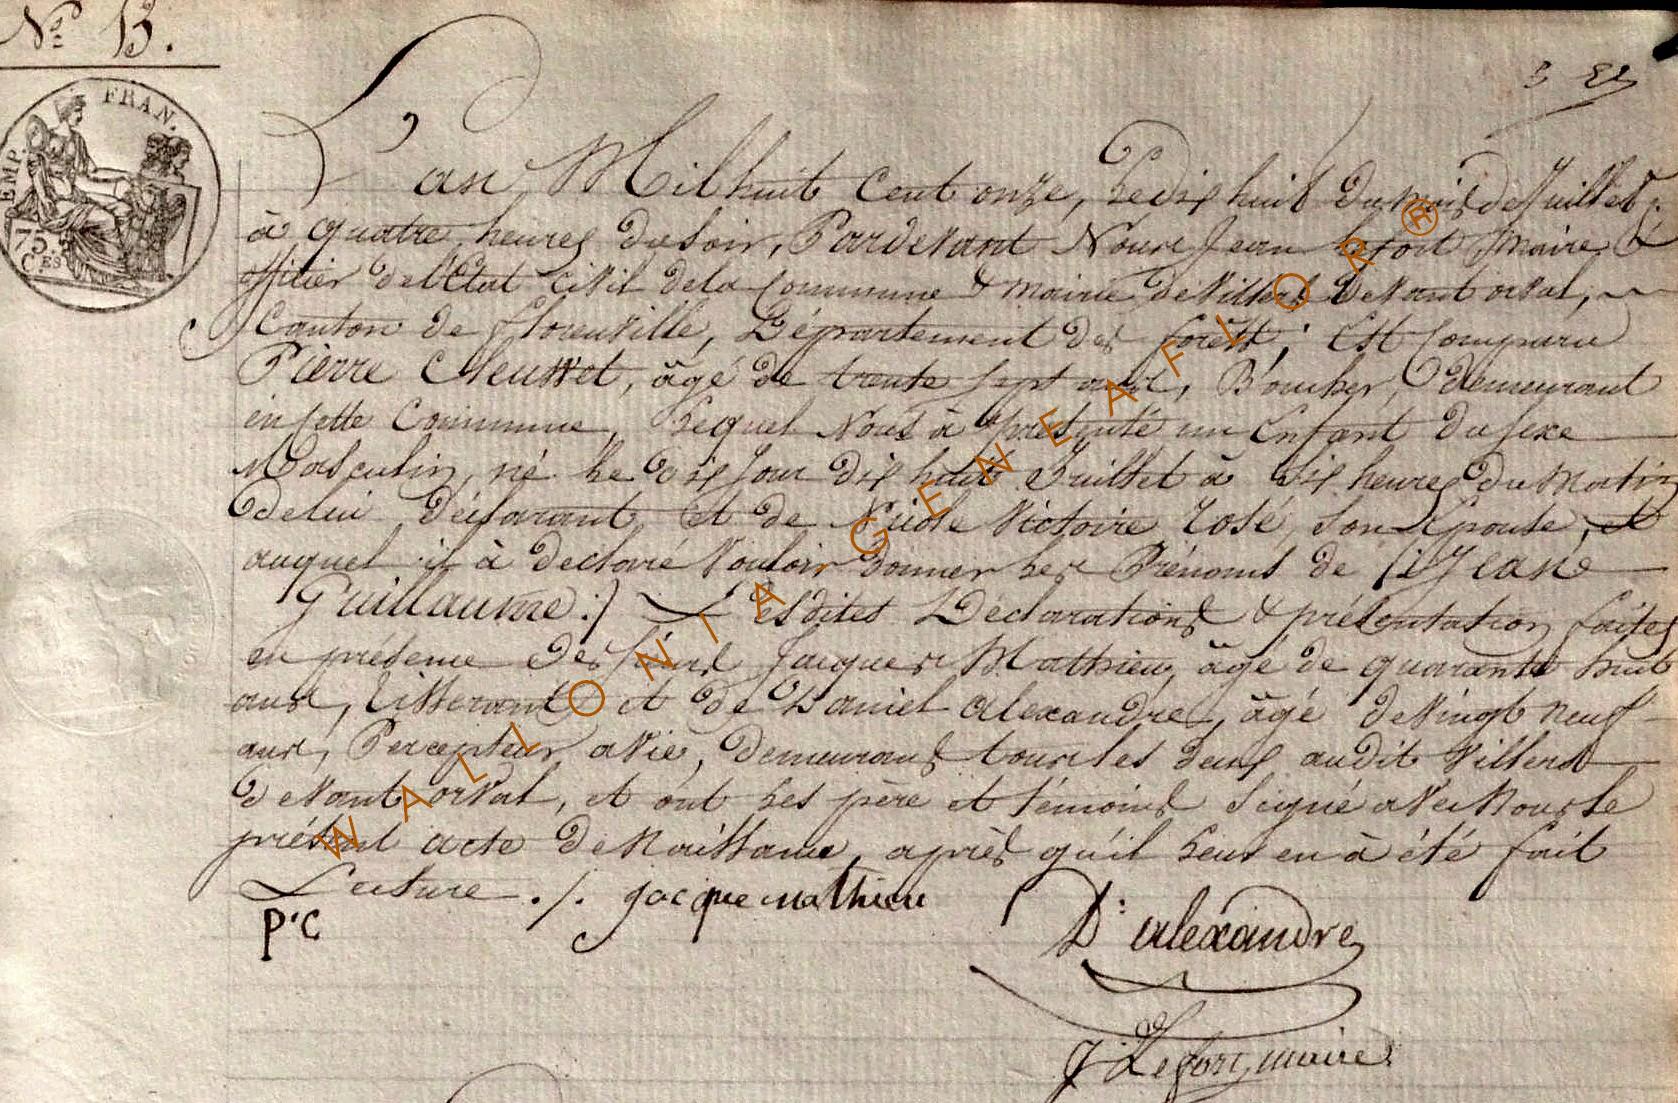 N° 13.
EMP. FRAN.
75 Ces
L'an Mil huit Cent onze, Le dix huit du mois de Juillet
à quatre heures du Soir, Pardevant Nous Jean Lefort Maire &
officier de l'Etat Civil dela Commune & mairie de Villers devant orval,
Canton de florenville, Département des forêts; Est Comparu
Pierre Cleusset, âgé de trente sept ans, Boucher, demeurant
en cette Commune, Lequel Nous à présenté un Enfant du sexe
Masculin, né Le dix huit Juillet à Six heures du Matin
de lui déclarant, et de Nicole Victoire Rosé, Son Epouse, et
auquel il à déclaré Vouloir donner Les Prénoms de (: Jean
Guillaume :) Lesdites Déclarations & présentation faites
en présence des Sieurs Jacques Mathieu, âgé de quarante huit
ans, Tisserand, et de Daniel Alexandre, âgé de Vingt Neuf
ans, Percepteur à Vie, demeurans tous les deux audit Villers
devant orval, et ont Les père et témoins Signé avec Nous le
présent acte de Naissance, après qu'il Leur en à été fait
Lecture ./. jacque mathieu
P·C
D: alexandre
J: Lefort, maire
WALLONIA GENEAFLOR®